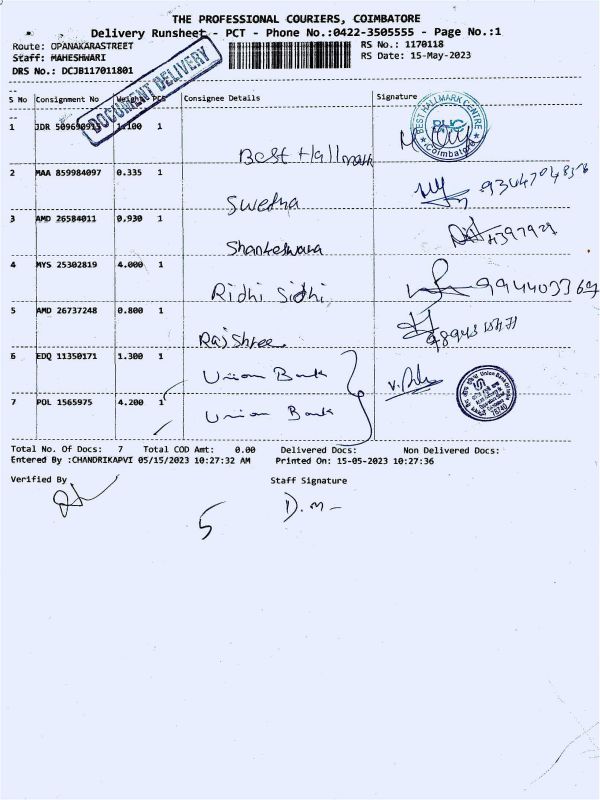 THE PROFESSIONAL COURIERS, COIMBATORE
Delivery Runsheet - PCT - Phone No.:0422-3505555 - Page No.:1
Route: OPANAKARASTREET
RS No.: 1170118
Staff: MAHESHWARI
RS Date: 15-May-2023
DRS No.: DCJB117011801
DOCUMENT DELIVERY
S No Consignment No Weight PCS Consignee Details Signature
1 JDR 1.100 1
BEST HALLMARK CENTRE
BHC
Coimbatore
Best Hallmark
2 MAA 859984097 0.335 1
Swetha
3 AMD 26584011 0.930 1
Shankeswara
4 MYS 25302819 4.000 1
Ridhi Sidhi
5 AMD 26737248 0.800 1
Rajshree
6 EDQ 11350171 1.300 1
Union Bank
7 POL 1565975 4.200 1
Union Bank
Total No. Of Docs: 7 Total COD Amt: 0.00 Delivered Docs: Non Delivered Docs:
Entered By :CHANDRIKAPVI 05/15/2023 10:27:32 AM Printed On: 15-05-2023 10:27:36
Verified By
Staff Signature
D. m -
5